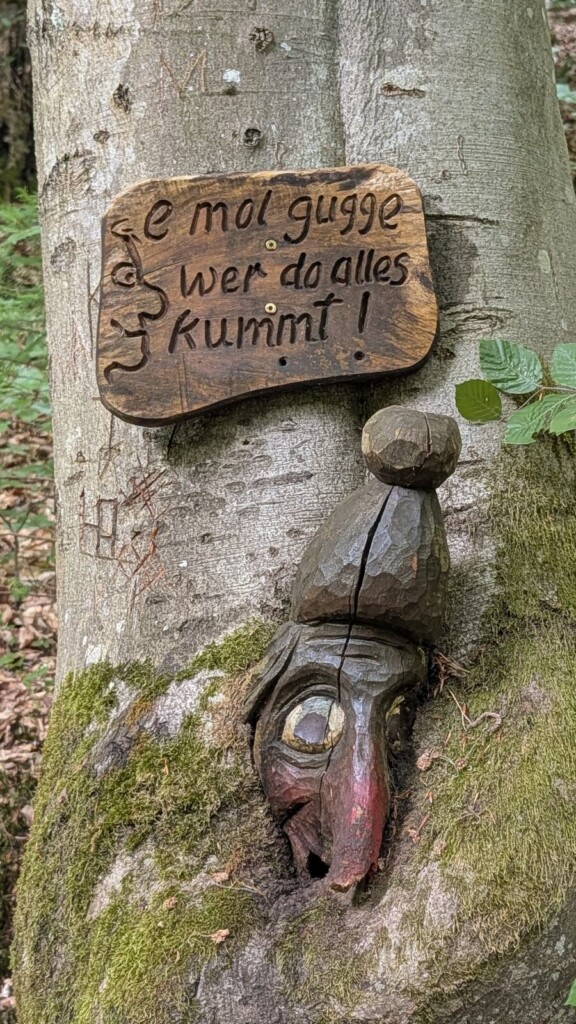 e mol gugge
wer do alles
kummt !